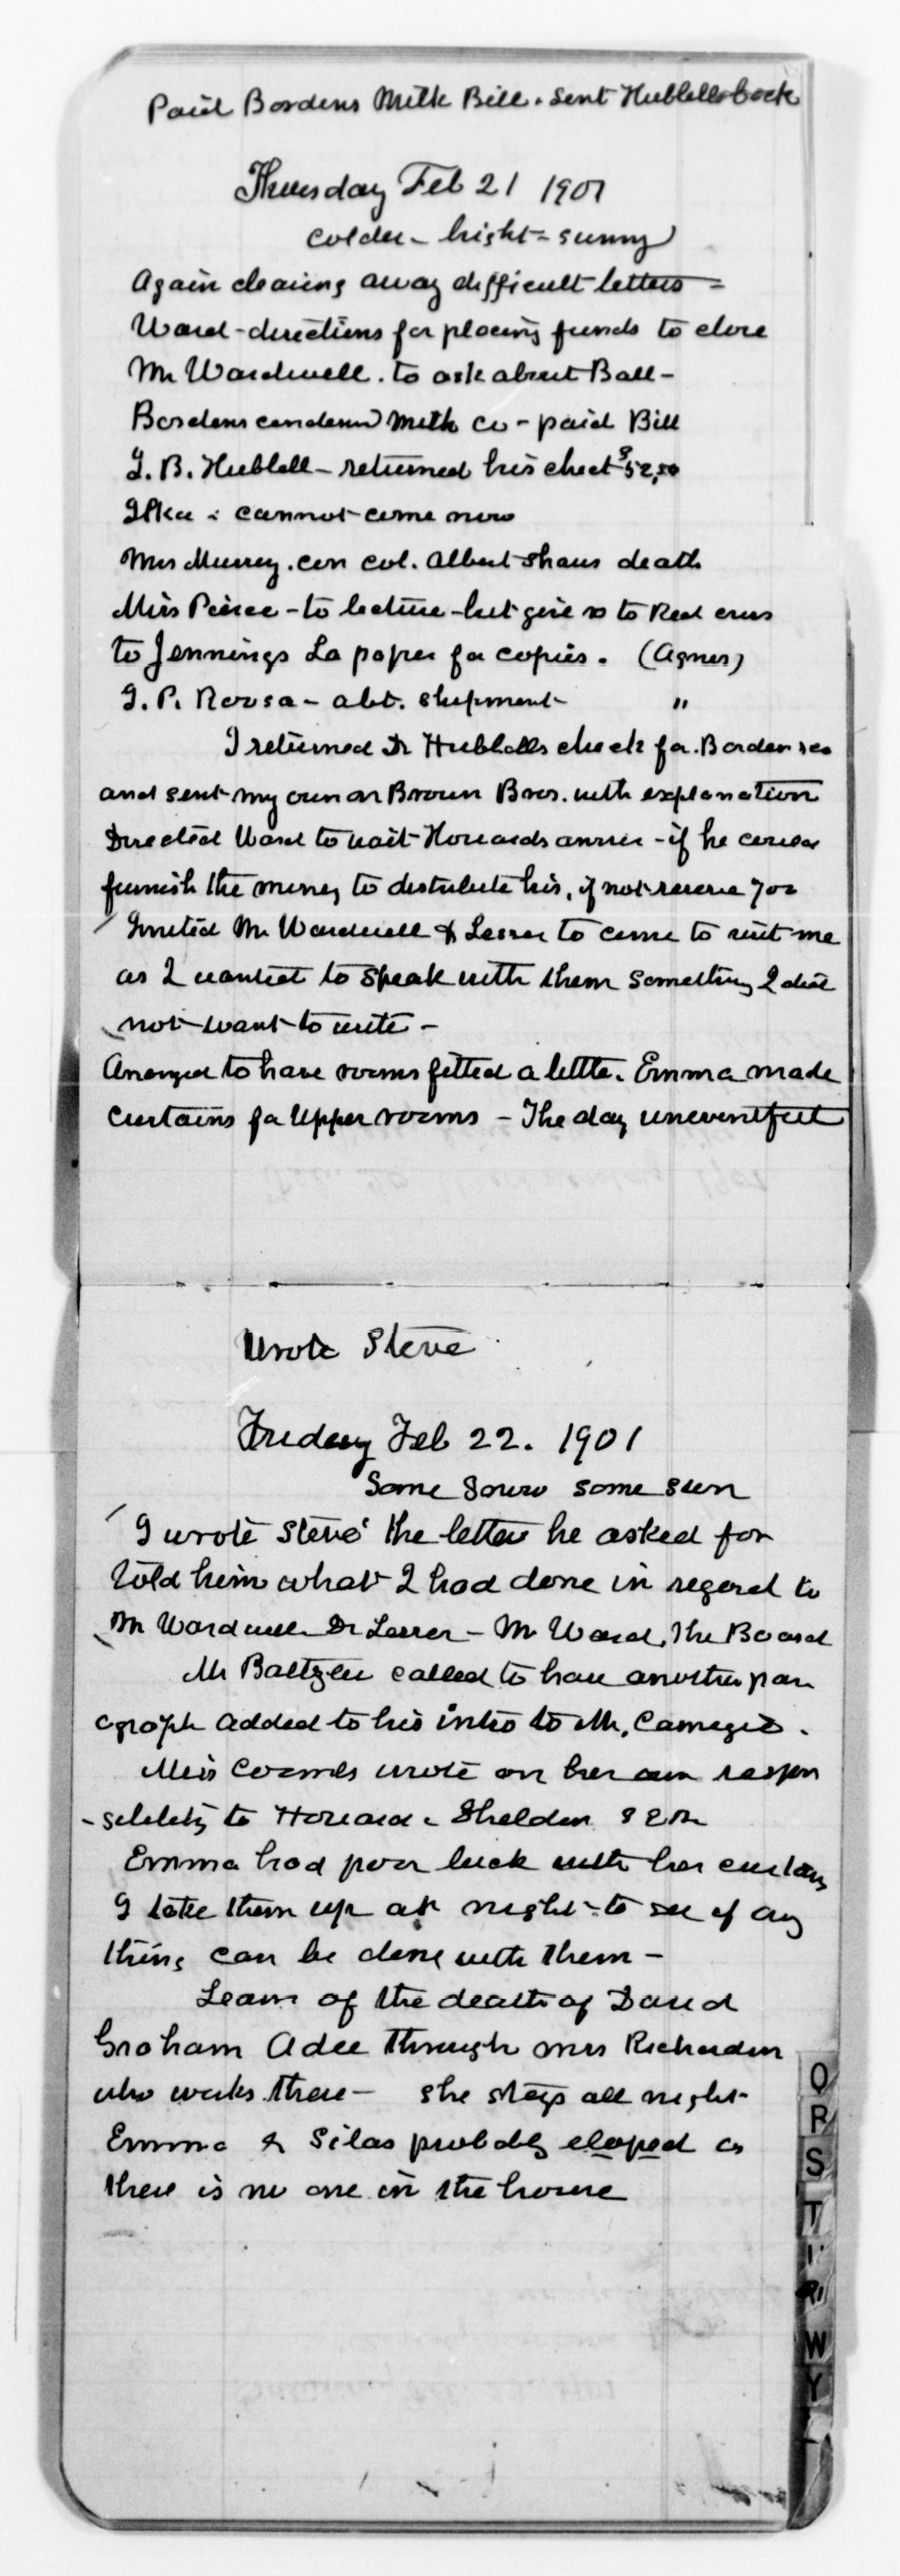 Paid Bordens Milk Bill. Sent Hubbells back
Thursday Feb 21 1901
colder - bright = sunny
Again clearing away difficult letters =
Ward - directions for placing funds to close
Mr Wardwell. to ask about Ball -
Bordens condensd Milk co - paid Bill
G. B. Hubbell - returned his check $52,50
Ilka : cannot come now
Mrs Murrey. con col. Albert Shaws death
Miss Peirce - to lecture - but give to Red cross
to Jennings La paper for copies. (Agnes)
G. P. Roosa - abt. shipment "
I returned Dr Hubbells check for Bordens
and sent my own on Brown Bros. with explanation
Directed Ward to wait Howards answer - if he could
furnish the money to distribute his, if not reserve 700
Invited Mr Wardwell & Lesser to come to visit me
as I wanted to speak with them something I did
not want to write -
Arranged to have rooms fitted a little. Emma made
Curtains for Upper rooms - The day uneventfull
Wrote Steve
Friday Feb 22. 1901
Some Snow some sun
I wrote Steve the letter he asked for
told him what I had done in regard to
Mr Wardwell Dr Lesser - Mr Ward, the Board
Mr Baltzley called to have another par
agraph added to his intro to Mr. Carnegie.
Miss Coombs wrote on her own respon
- sibility to Howard & Sheldon
Emma had poor luck with her curtains
I take them up at night - to see if any
thing can be done with them -
Learn of the death of David
Graham Adee through Mrs Richardson
who works there - she stays all night
Emma & Silas probably eloped as
there is no one in the house
Q
R
S
T
W
Y